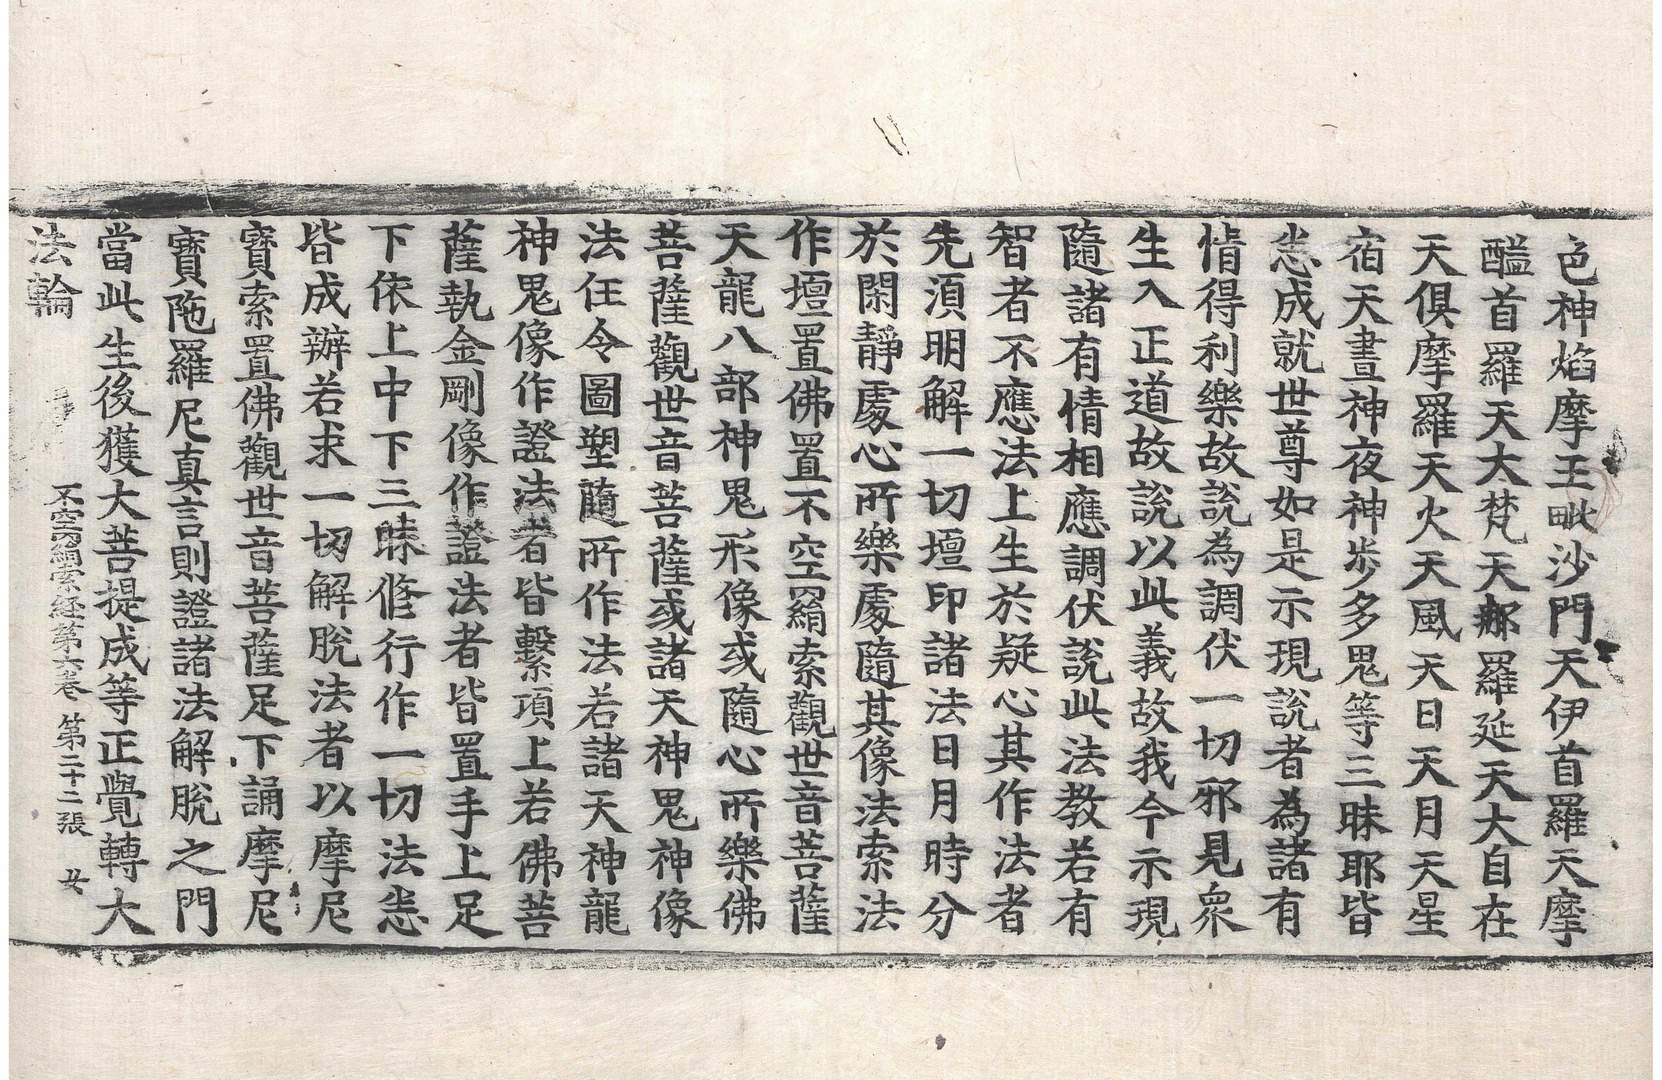 色神焰摩王毗沙門天伊首羅天摩
醯首羅天大梵天那羅延天大自在
天俱摩羅天火天風天日天月天星
宿天晝神夜神步多鬼等三昧耶皆
悉成就世尊如是示現說者為諸有
情得利樂故說為調伏一切邪見眾
生入正道故說以此義故我今示現
隨諸有情相應調伏說此法教若有
智者不應法上生於疑心其作法者
先須明解一切壇印諸法日月時分
於閑靜處心所樂處隨其像法索法
作壇置佛置不空羂索觀世音菩薩
天龍八部神鬼形像或隨心所樂佛
菩薩觀世音菩薩或諸天神鬼神像
法任令圖塑隨所作法若諸天神龍
神鬼像作證法者皆繫項上若佛菩
薩執金剛像作證法者皆置手上足
下依上中下三昧修行作一切法悉
皆成辦若求一切解脫法者以摩尼
寶索置佛觀世音菩薩足下誦摩尼
寶陁羅尼真言則證諸法解脫之門
當此生後獲大菩提成等正覺轉大
法輪
不空羂索経第六卷 第二十二張 女